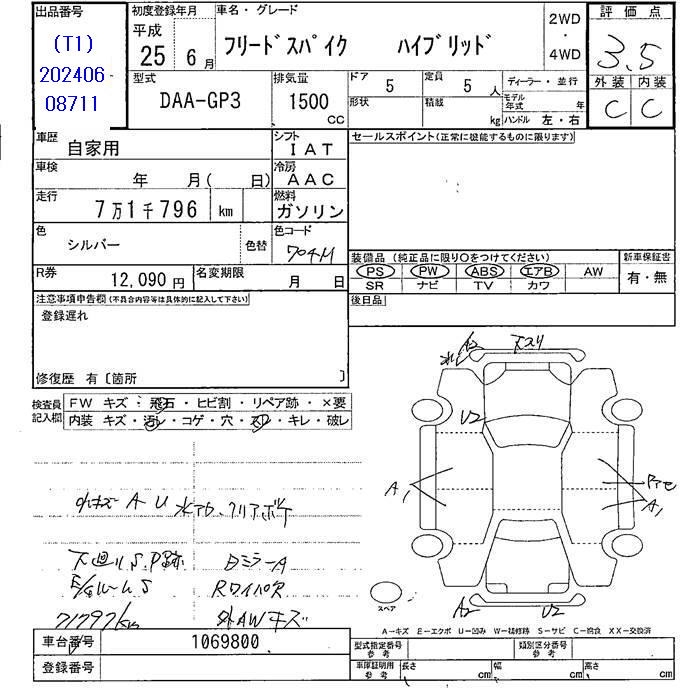 出品番号
(T1)
202406
08711
初度登録年月
平成
25 6 月
車名・グレード
フリードスパイク ハイブリッド
2WD
・
4WD
評価点
3.5
外装 内装
C C
型式
DAA-GP3
排気量
1500
CC
ドア
5
形状
定員
5 人
積載
kg
ディーラー・並行
モデル年式 年
ハンドル 左・右
車歴
自家用
シフト
IAT
車検
年 月( 日)
冷房
AAC
走行
7万1千796 km
燃料
ガソリン
色
シルバー
色替
色コード
704M
R券
12,090 円
名変期限
月 日
セールスポイント(正常に機能するものに限ります)
装備品 (純正品に限り○をつけてください)
PS PW ABS エアB AW
SR ナビ TV カワ
新車保証書
有・無
後日品
注意事項申告欄(不具合内容等は具体的に記入して下さい)
登録遅れ
修復歴 有〔箇所 〕
検査員
記入欄
FW キズ・飛石・ヒビ割・リペア跡・×要
内装 キズ・汚レ・コゲ・穴・スレ・キレ・破レ
小キズ A U 水アカ、クリアボケ
下廻りS,P跡
日ミラーA
S
Rワイパ欠
71797km
外AWキズ
A2
スリ
U2
A1
A1
A2
U2
スペア
A―キズ E―エクボ U―凹み W―補修跡 S―サビ C―腐食 XX―交換済
車台番号
1069800
登録番号
型式指定番号
参考
類別区分番号
参考
車庫証明用
参考
長さ cm
幅 cm
高さ cm